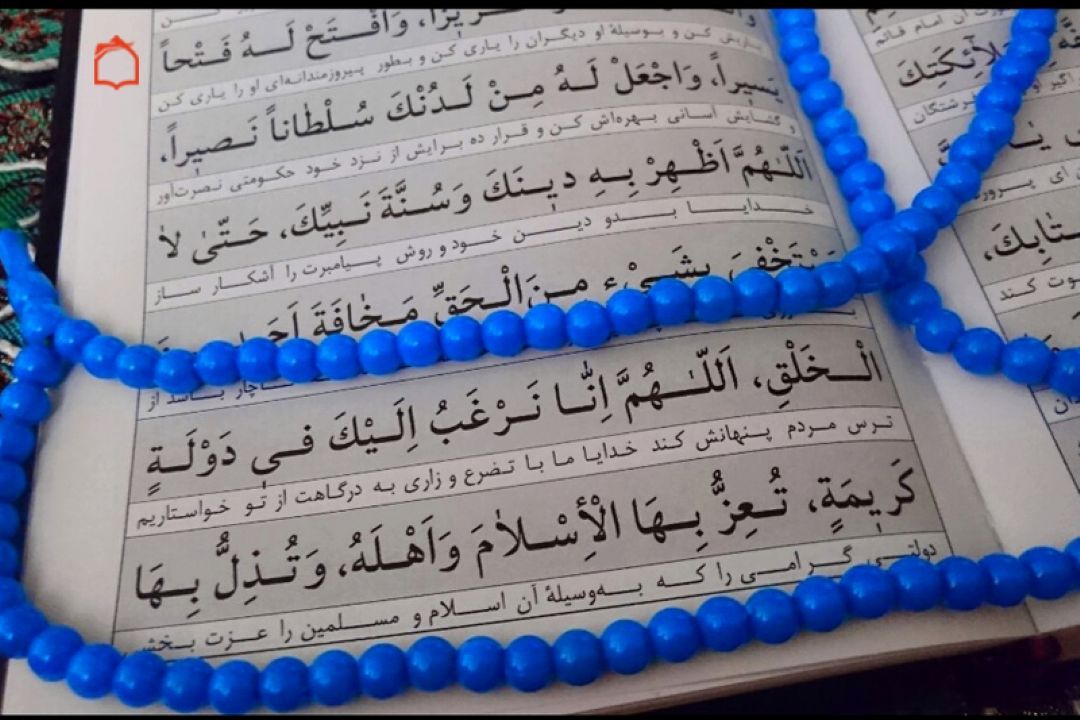 وَافْتَحْ لَهُ فَتْحاً
یاریش کن و بوسیلهٔ او دیگران را یاری کن و بطور پیروزمندانه‌ای او را یاری کن
يَسيراً، وَاجْعَلْ لَهُ مِنْ لَدُنْكَ سُلْطاناً نَصيراً،
و گشایش آسانی بهره‌اش کن و قرار ده برایش از نزد خود حکومتی نصرت‌آور
اَللّٰهُمَّ اَظْهِرْ بِهِ دينَكَ وَسُنَّةَ نَبِيِّكَ، حَتّىٰ لاٰ
خدایا بدو دین خود و روش پیامبرت را آشکار ساز
يَسْتَخْفِىَ بِشَىْءٍ مِنَ الْحَقِّ مَخٰافَةَ اَحَدٍ
ناچار باشد از
الْخَلْقِ، اَللّٰهُمَّ اِنّٰا نَرْغَبُ اِلَيْكَ فى دَوْلَةٍ
ترس مردم پنهانش کند خدایا ما با تضرع و زاری به درگاهت از تو خواستاریم
كَريمَةٍ، تُعِزُّ بِهَا الْأِسْلاٰمَ وَاَهْلَهُ، وَتُذِلُّ بِهَا
دولتی گرامی را که به‌وسیلهٔ آن اسلام و مسلمین را عزت بخشی
آن امام قائم
مَلاٰئِكَتِكَ
فرشتگان
ای پرورد
كِتٰابِكَ،
دعوت کند